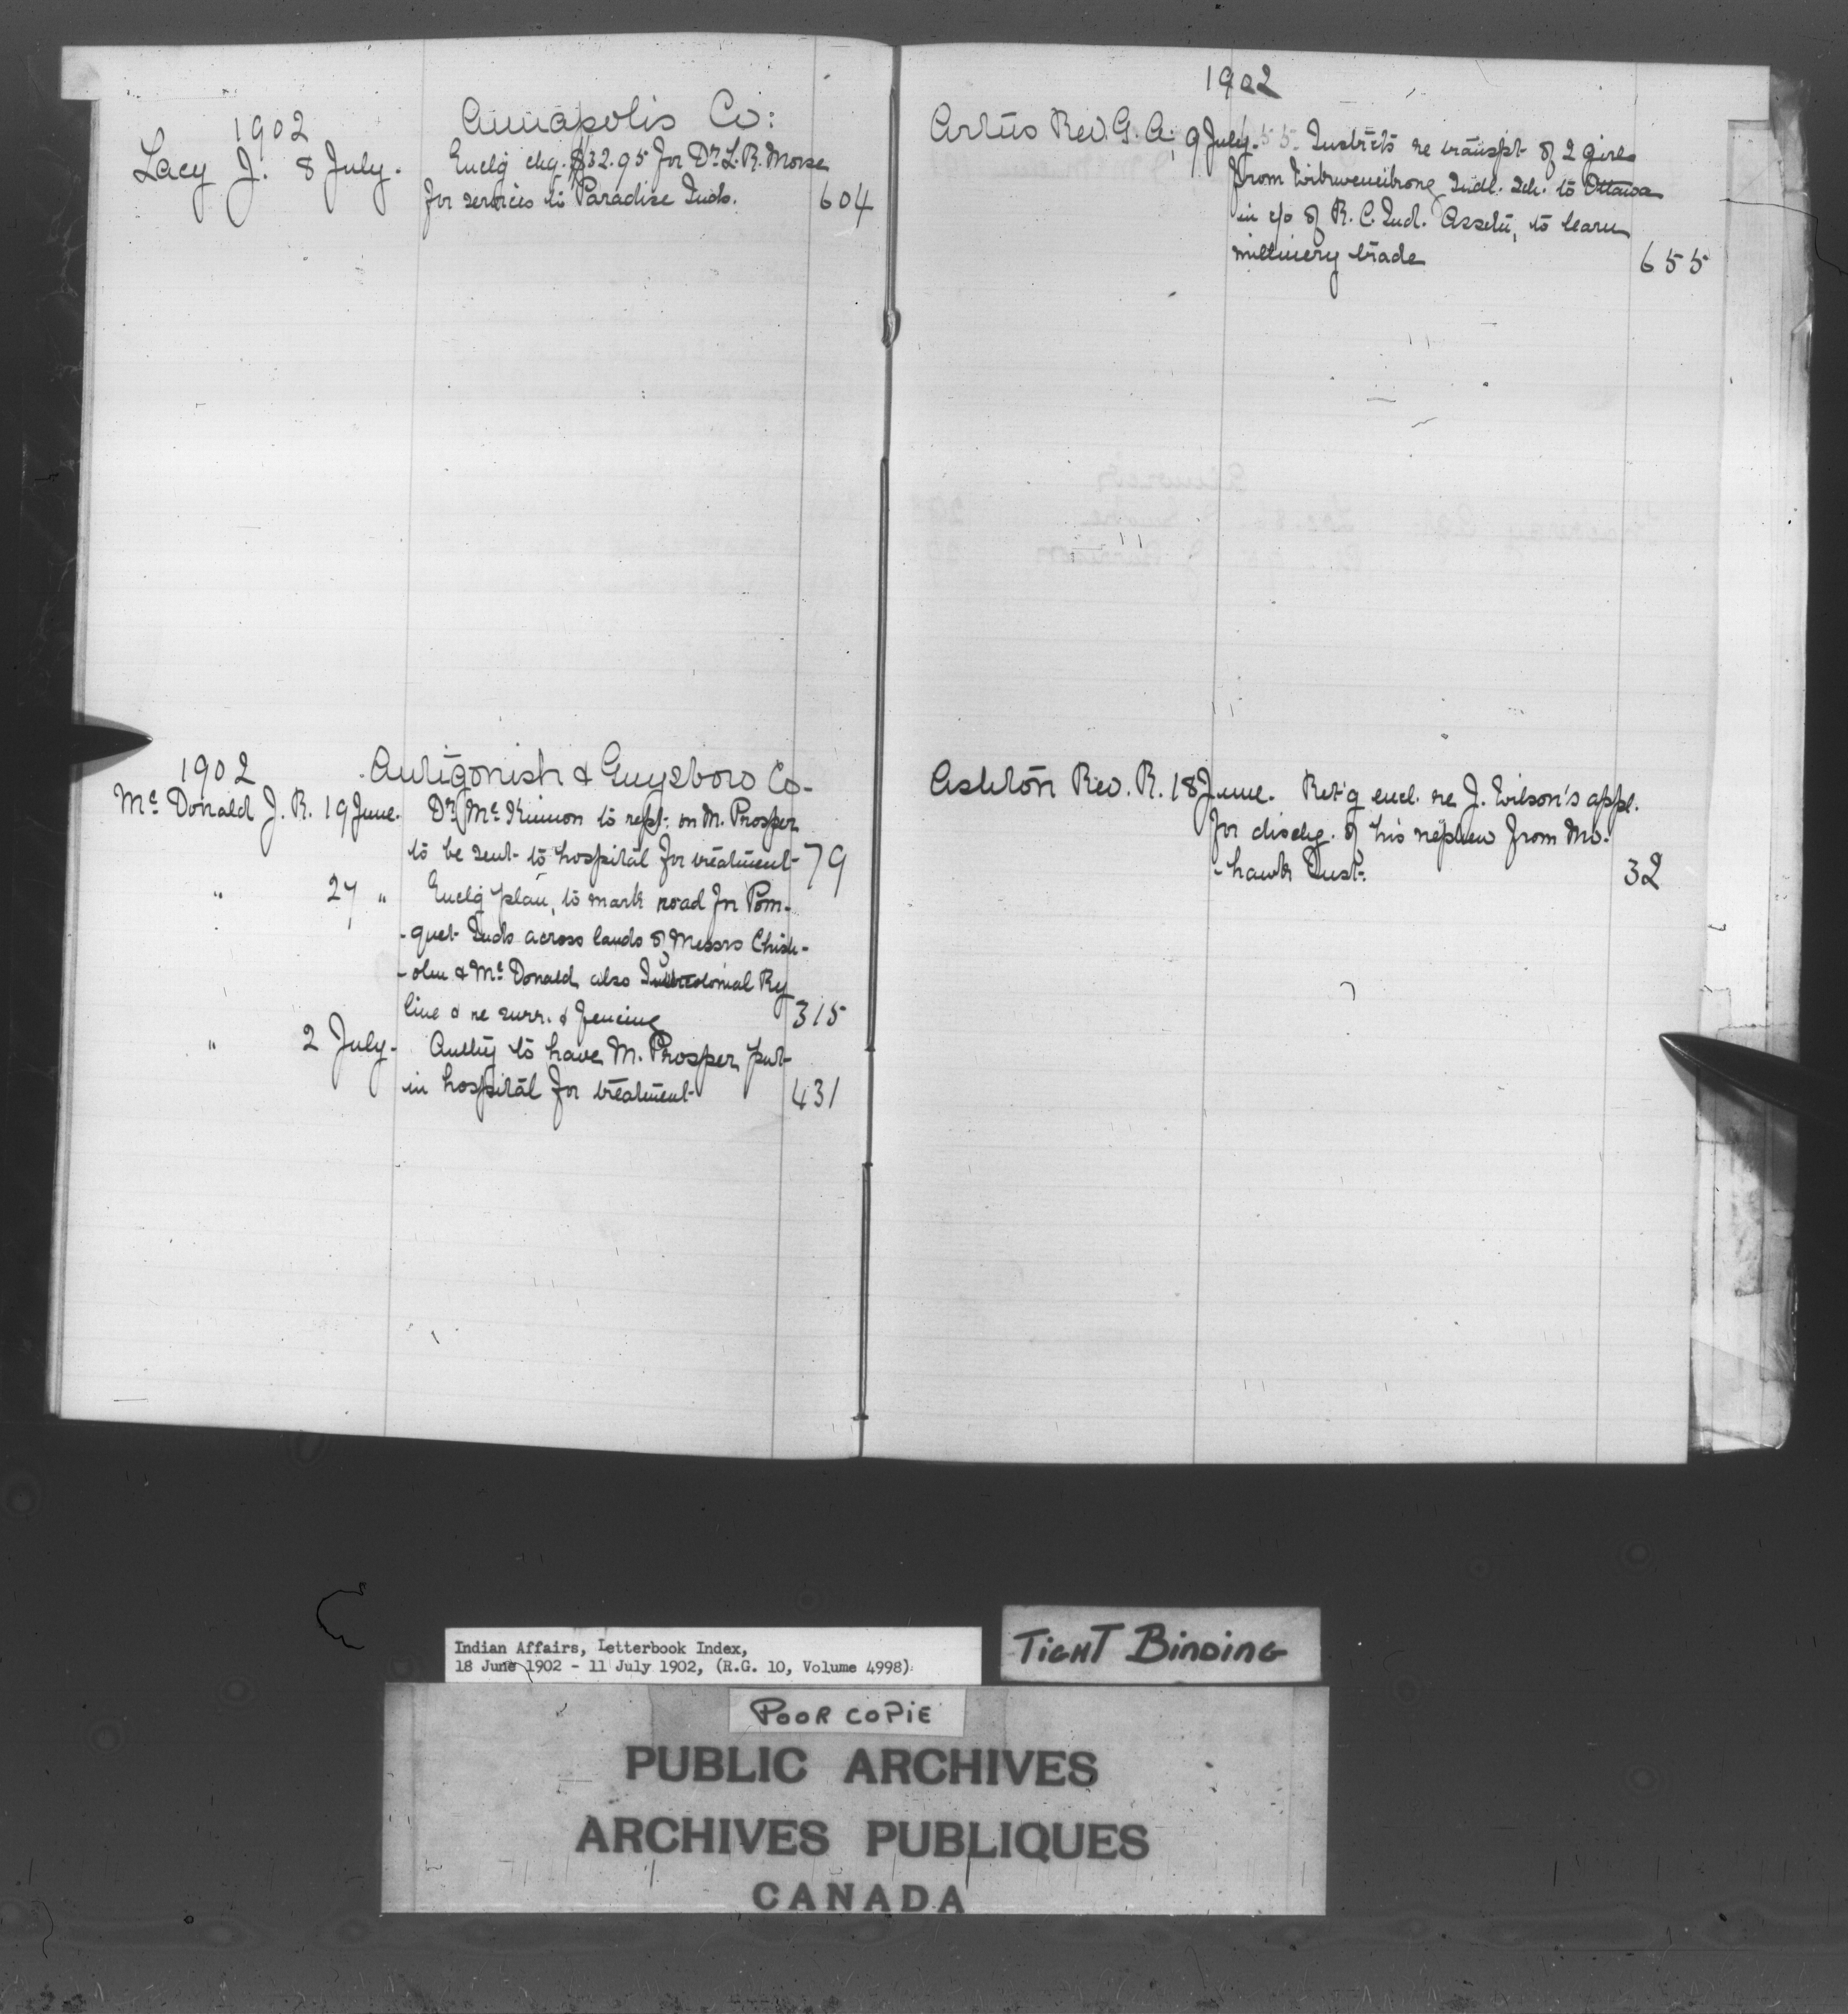 1902
Annapolis Co:
Lacy J. 8 July. Enclg chq. $32.95 for Dr. L. R. Morse
for services to Paradise Inds. 604
1902
Antigonish & Guysboro Co.
Mc Donald J. R. 19 June. Dr. Mc Kinnon to rept. on M. Prosper
to be sent to hospital for treatment 79
" 27 " Enclg plan, to mark road for Pom-
-quet Inds across lands of Messrs Chish-
-olm & Mc Donald, also Intercolonial Ry
line & re surr. & fencing 315
" 2 July. Authy to have M. Prosper put
in hospital for treatment 431
1902
Artus Rev. G. A. 9 July. Instrcts re transpt of 2 girls
from Wikwemikong Indl. Sch. to Ottawa
in c/o of R. C. Ind. Asscn, to learn
millinery trade 655
Ashton Rev. R. 18 June. Ret'g encl. re J. Wilson's appl.
for dischg. of his nephew from Mo-
-hawk Inst. 32
Indian Affairs, Letterbook Index,
18 June 1902 - 11 July 1902, (R.G. 10, Volume 4998)
TIGHT BINDING
POOR COPIE
PUBLIC ARCHIVES
ARCHIVES PUBLIQUES
CANADA